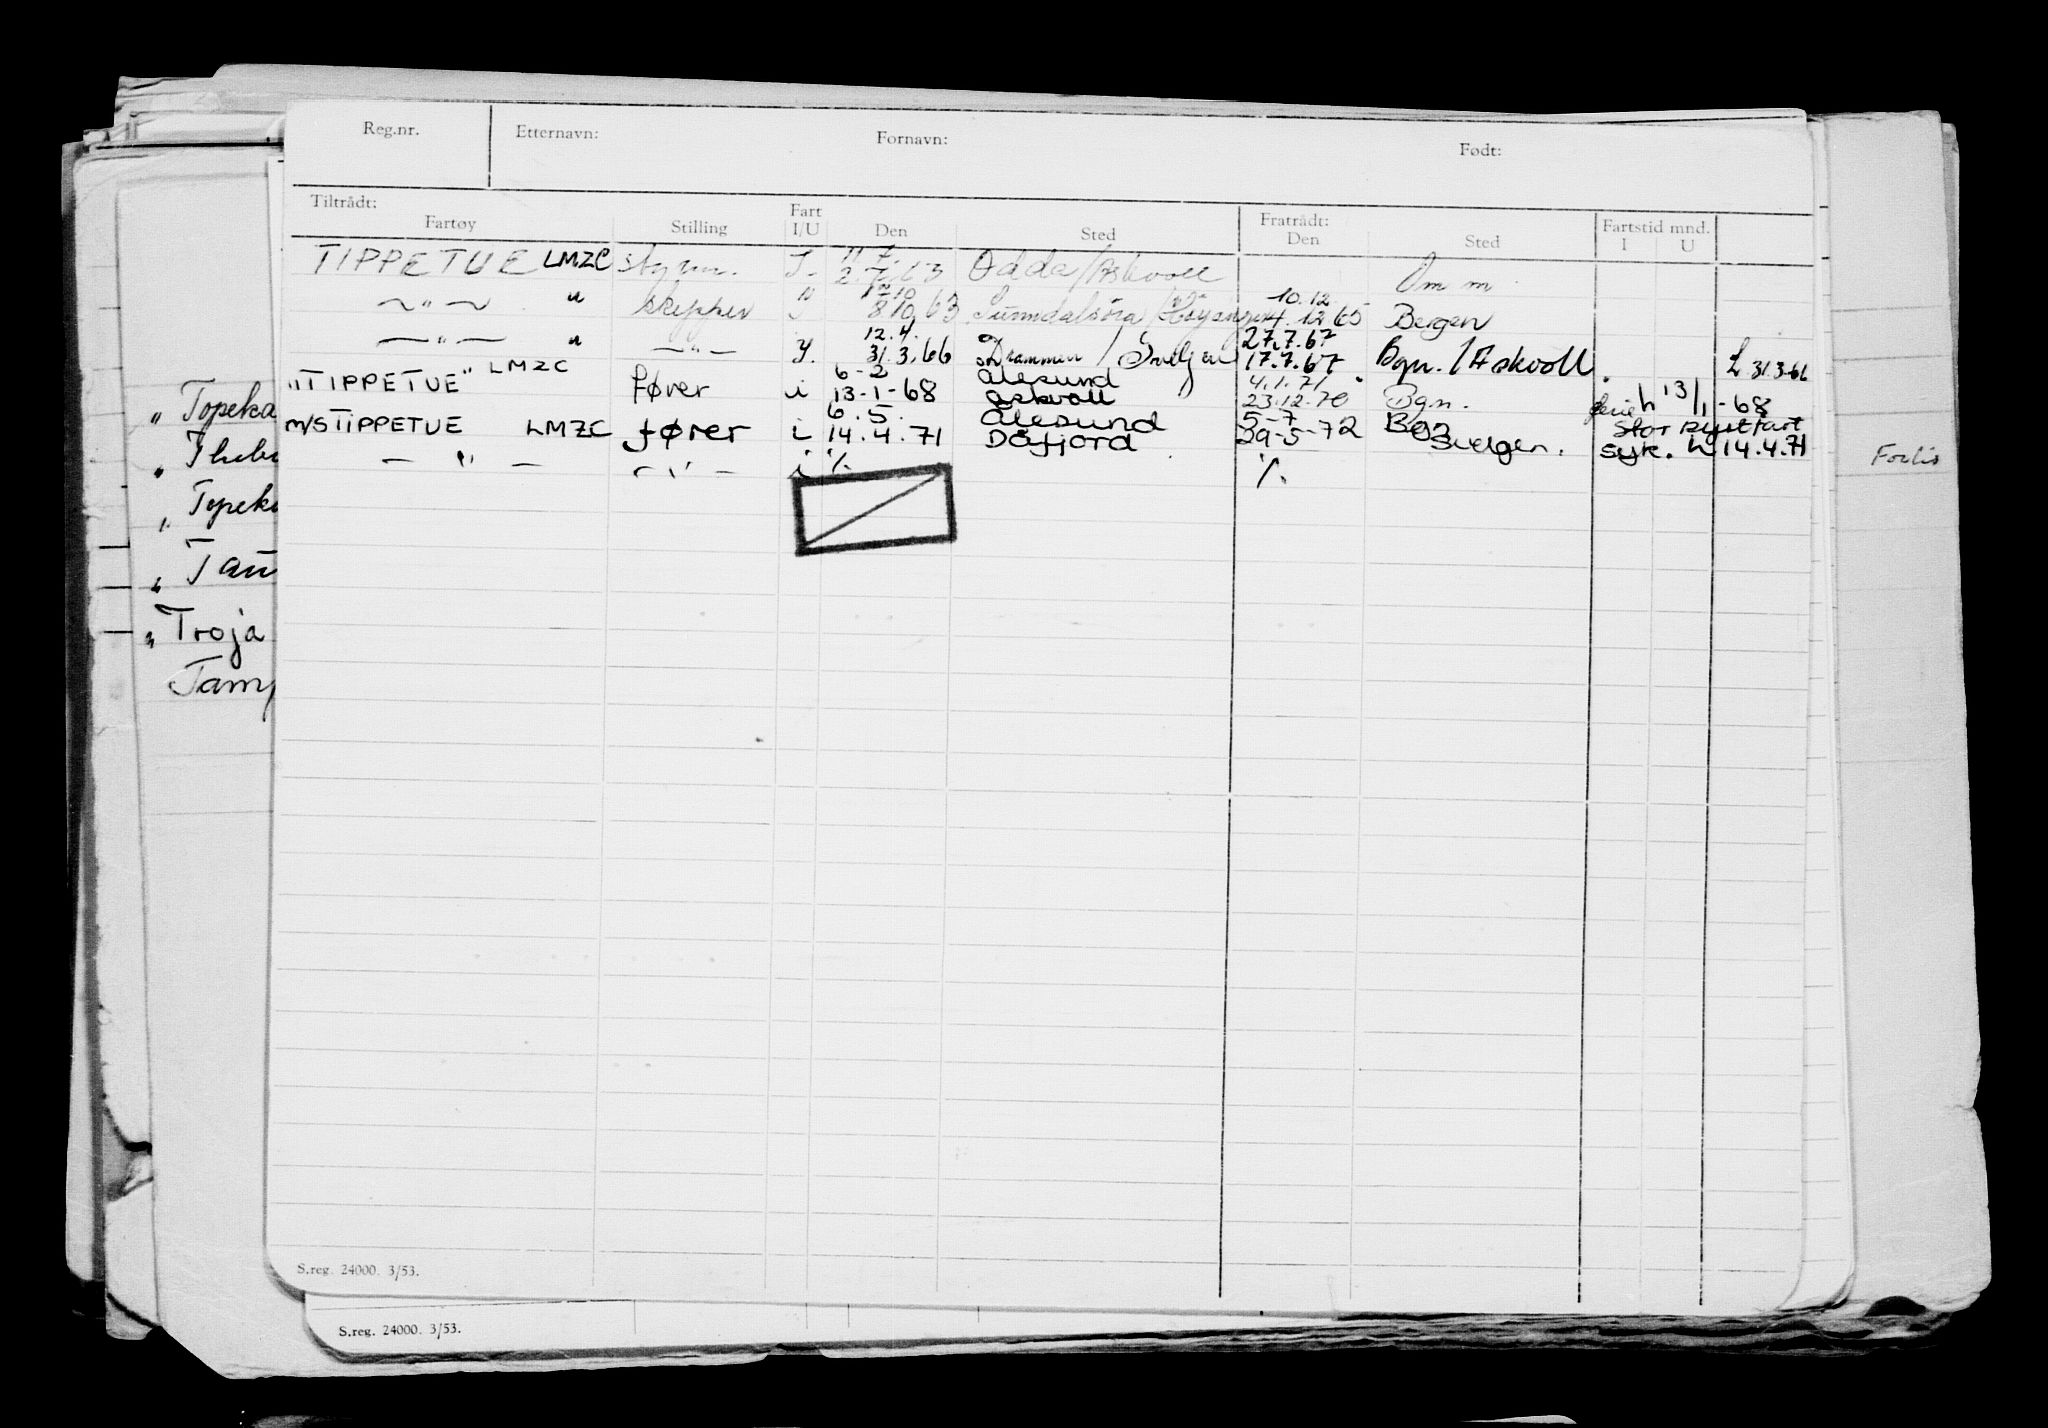 Reg.nr. Etternavn: Fornavn: Født:
Tiltrådt: Fratrådt:
Fartøy Stilling Fart I/U Den Sted Den Sted Fartstid mnd. I U
11.7.
TIPPETUE LMZC styrm. I. 2.7.63 Odda/Askvoll Om m
10.12
—"— " skipper I 8 10 63 Sunndalsöra / 4.12 65 Bergen
12.4. 27.7.67
—"— " —"— I. 31.3.66 Drammen / 17.7.67 Bgn. / Askvoll L 31.3.66
LMZC 6-2 Ålesund 4.1.71
"TIPPETUE" fører i 13-1-68 Askvoll 23.12.70 Bgn. ferie h 13/1-68
6.5. Ålesund 5-7 Bgn Stor kystfart
M/S TIPPETUE LMZC fører i 14.4.71 Dafjord 29-5-72 Bergen. syk. h 14.4.71
—"— —"— i ·/. ·/.
" Topeka
"
" Topeka
"
" Troja
S.reg. 24000. 3/53.
S.reg. 24000. 3/53.